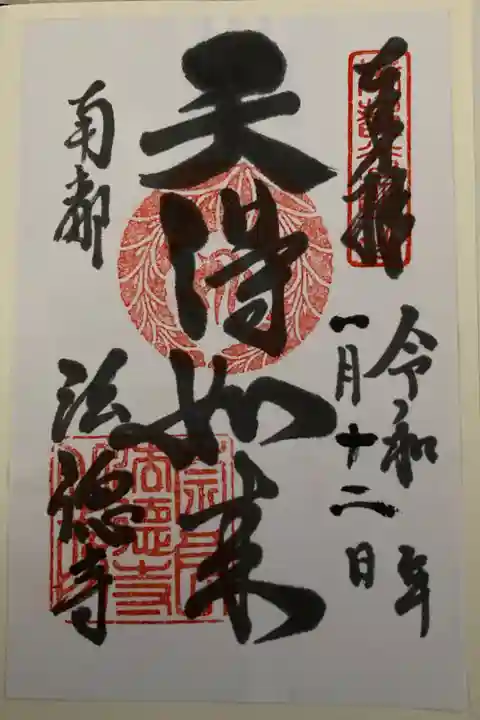 奉拝
令和 年
一月十二日
天得如来
南都
法徳寺